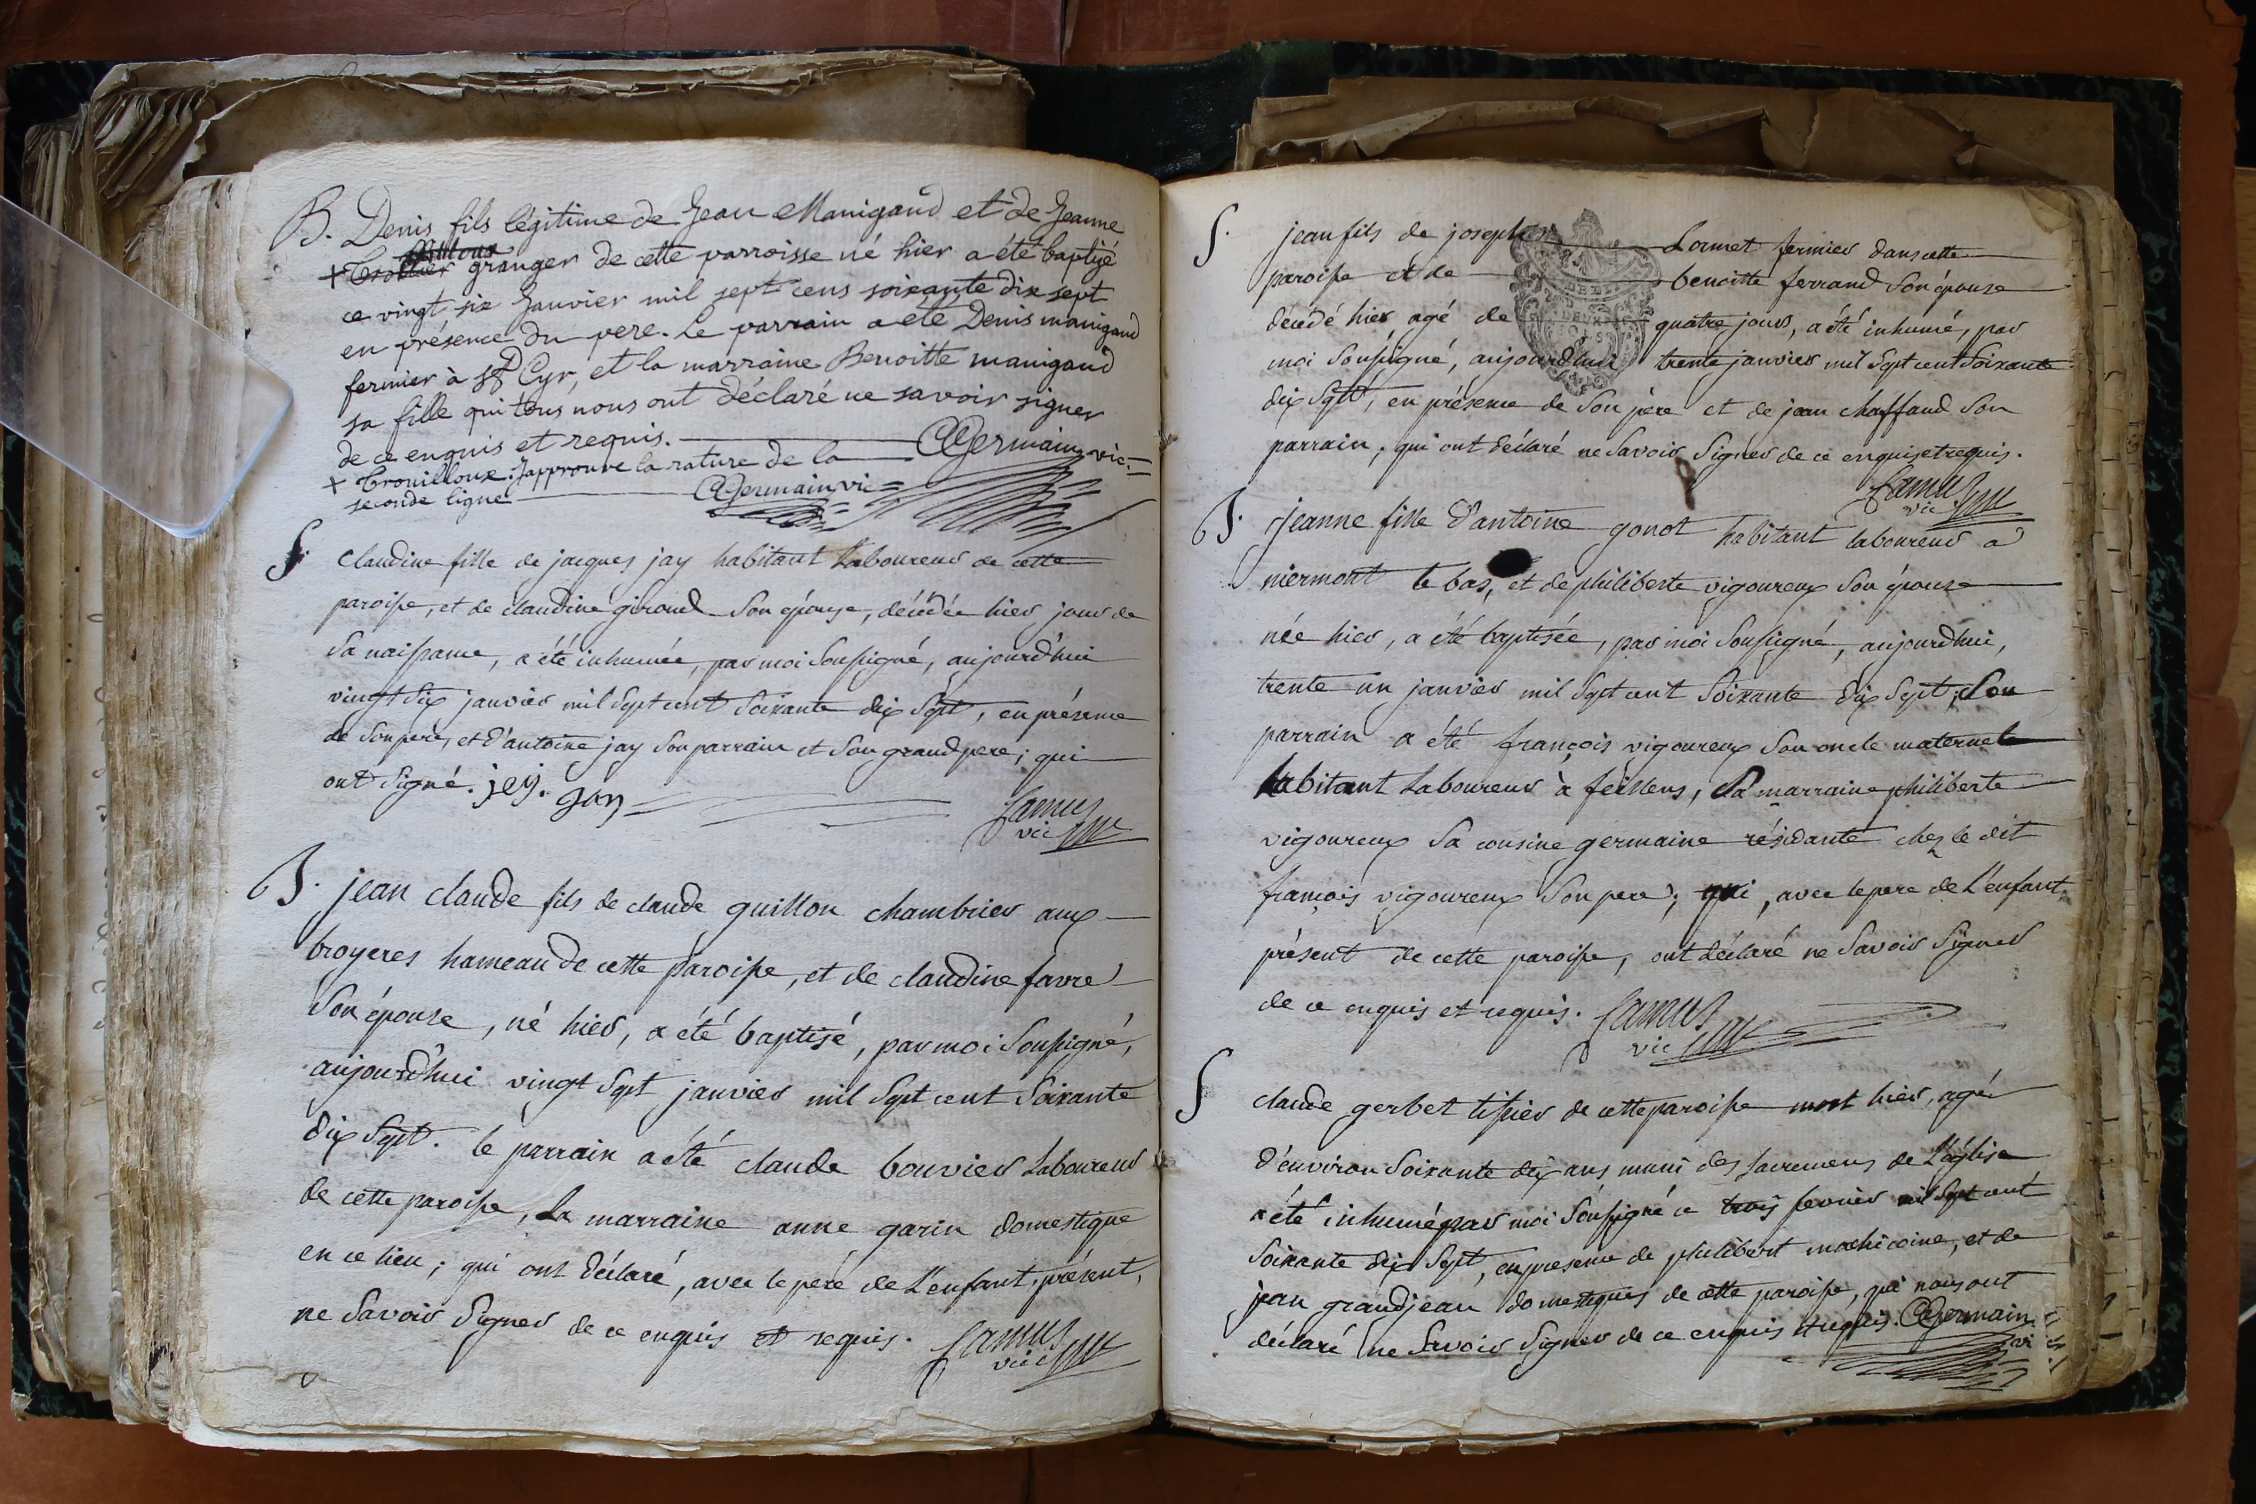 B. Denis fils légitime de Jean Manigand et de Jeanne
+ granger de cette parroisse né hier a été baptizé
ce vingt six Janvier mil sept cens soixante dix sept
en présence du pere. Le parrain a été Denis manigand
fermier à St Cyr, et la marraine Benoitte manigand
sa fille qui tous nous ont déclaré ne savoir signer
de ce enquis et requis. Germain vic.
+ Trouilloux. J'approuve la rature de la
seconde ligne Germain vic
S. Claudine fille de jacques jay habitant Laboureur de cette
paroisse, et de claudine giroud son épouse, décédée hier jour de
sa naissance, a été inhumée, par moi soussigné, aujourd'hui
vingt six janvier mil sept cent soixante dix sept, en présence
de son pere, et d'antoine jay son parrain et son grand pere; qui
ont signé. jey. Jay
Camus
vic
B. jean claude fils de claude guillon chambrier aux
broyeres hameau de cette paroisse, et de claudine favre
son épouse, né hier, a été baptisé, par moi soussigné,
aujourd'hui vingt sept janvier mil sept cent soixante
dix sept. le parrain a été claude bouvier Laboureur
de cette paroisse, La marraine anne garin domestique
en ce lieu; qui ont déclaré, avec le pere de L'enfant, présent,
ne savoir signer de ce enquis et requis. Camus
vic
S. jean fils de joseph Lornet fermier dans cette
paroisse et de benoitte ferrand son épouse
décédé hier agé de quatre jours, a été inhumé, par
moi soussigné, aujourd'hui trente janvier mil sept cent soixante
dix sept, en présence de son père et de jean chaffaud son
parrain, qui ont déclaré ne savoir signer de ce enquis et requis.
Camus
vic
B. jeanne fille d'antoine gonot habitant laboureur a
niermont le bas, et de philiberte vigoureux son épouse
née hier, a été baptisée, par moi soussigné, aujourdhui,
trente un janvier mil sept cent soixante dix sept; son
parrain a été françois vigoureux son oncle maternel
habitant Laboureur à feillens, sa marraine philiberte
vigoureux sa cousine germaine résidante chez le dit
françois vigoureux son pere; qui, avec le pere de L'enfant,
présent de cette paroisse, ont déclaré ne savoir signer
de ce enquis et requis. Camus
vic
S claude gerbet tissier de cette paroisse mort hier, agé
d'environ soixante dix ans muni des sacremens de L'église
a été inhumé par moi soussigné ce trois fevrier mil sept cent
soixante dix sept, en presence de philibert machicoine, et de
jean grandjean domestiques de cette paroisse, qui nous ont
déclaré ne savoir signer de ce enquis et requis. Germain
vi